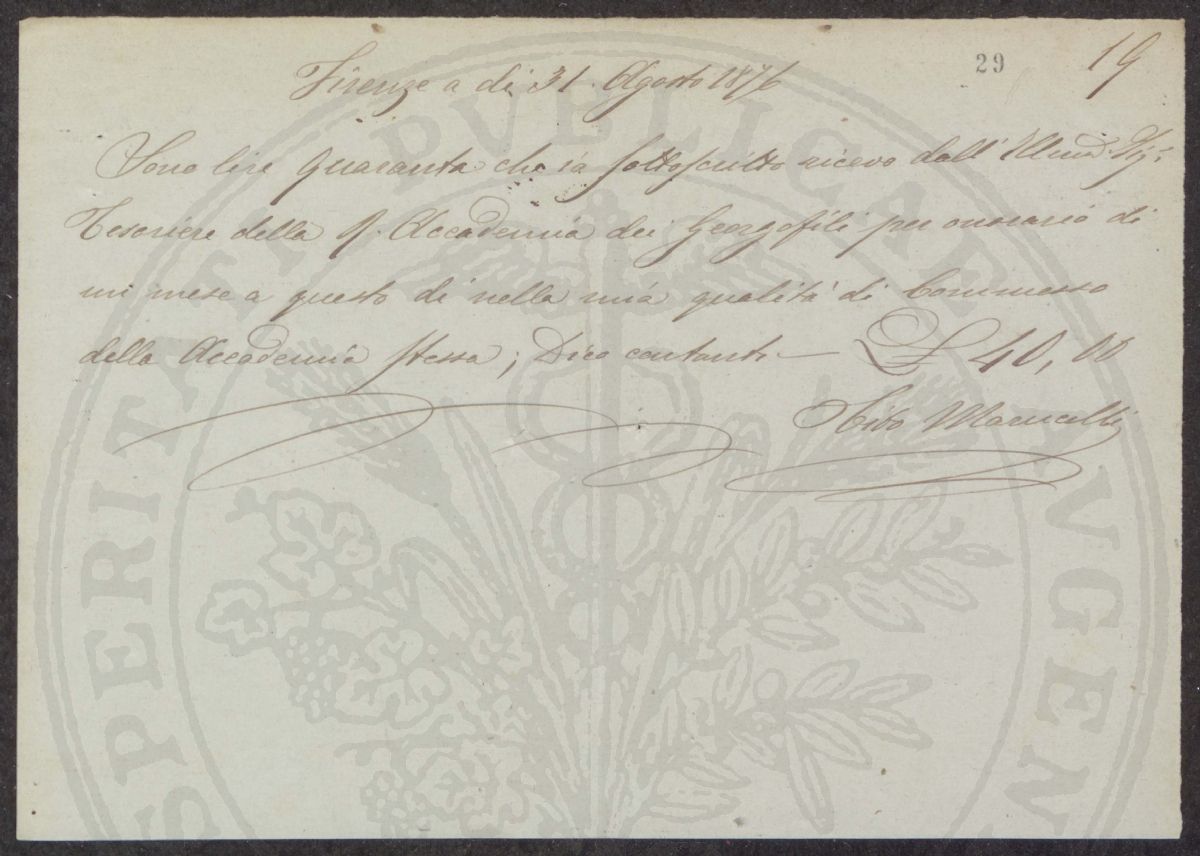 29
19
Firenze a di 31. Agosto 1876
Sono lire Quaranta che io sottoscritto ricevo dall' Illmo. Sig.
Tesoriere della R. Accademia dei Georgofili per onorario di
un mese a questo dì nella mia qualità di Commesso
della Accademia stessa; Dico contanti — L 40,00
PROSPERITATI PVBLICAE AVGEN